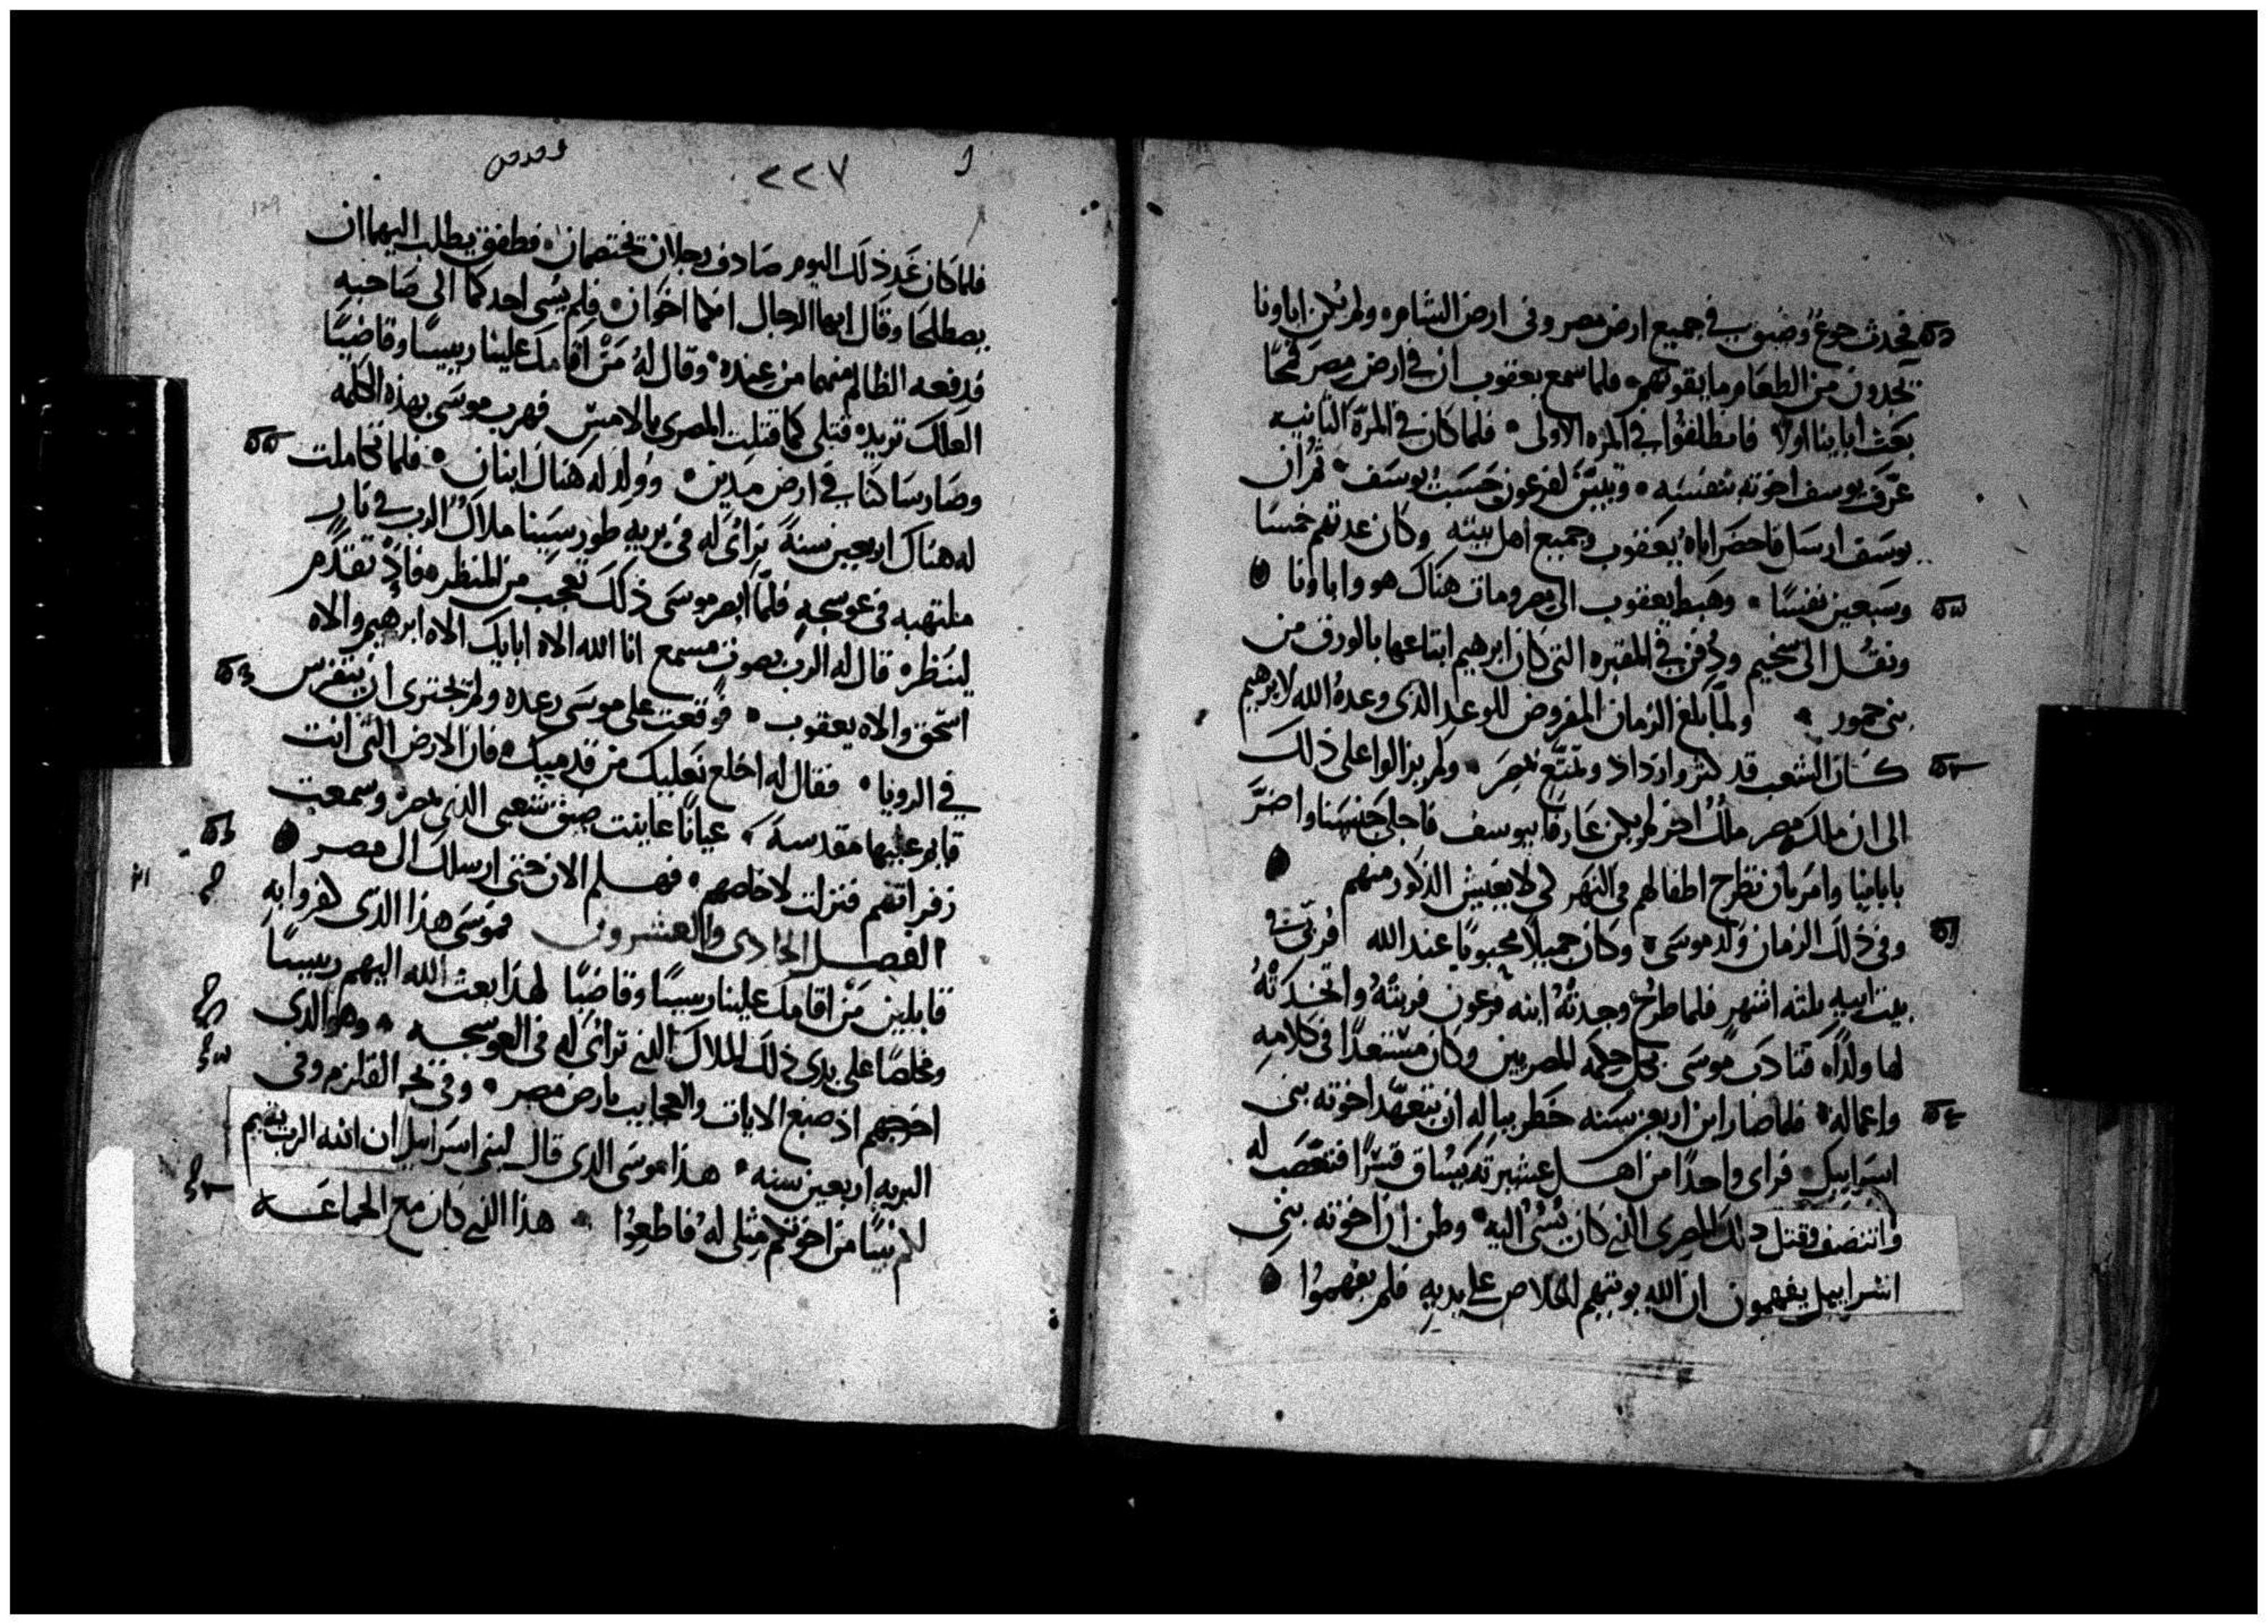 فحدث جوع وضيق في جميع ارض مصر وفى ارض الشام ولم يكن اباونا
يجدون من الطعام ما يقوتهم فلما سمع يعقوب ان في ارض مصر قمحًا
بعث ابانا اولا فانطلقوا في المره الاولى فلما كان في المرّة الثانيه
عرّف يوسف اخوته بنفسه وتبيّن لفرعون حسب يوسف ثم ان
يوسف ارسل فاحضر اباه يعقوب وجميع اهل بيته وكان عدتهم خمسا
وسبعين نفسًا وهبط يعقوب الى مصر ومات هناك هو واباونا
ونقل الى شخيم ودفن في المقبره التي كان ابرهيم ابتاعها بالورق من
بنى حمور ولما بلغ الزمان المفروض للوعد الذى وعده الله لابرهيم
كان الشعب قد كثر وازداد وتمتع بمصر ولم يزالوا على ذلك
الى ان ملك مصر ملك اخر لم يكن عارفا بيوسف فاحلى جنسنا واضرّ
بابائنا وامر بان تطرح اطفالهم في النهر لكى لا يعيش الذكور منهم
وفى ذلك الزمان ولد موسى وكان جميلا محبوبًا عند الله فربى في
بيت ابيه ثلثه اشهر فلما طرح وجدته ابنه فرعون فربته واتخذته
لها ولدًا فتادب موسى بكل حكمه المصريين وكان مستعدًا فى كلامه
واعماله فلما صار ابن اربعين سنه خطر بباله ان يتعهد اخوته بنى
اسراييل فراى واحدًا من اهل عشيرته يساق قسرًا فتعصب له
وانتصف وقتل ذلك المصرى الذي كان يسئ اليه وظن ان اخوته بنى
اسراييل يفهمون ان الله يوتيهم الخلاص على يديه فلم يفهموا
٢٢٧
فلما كان غد ذلك اليوم صادف رجلان يختصمان فطفق يطلب اليهما ان
يصطلحا وقال ايها الرجال انكما اخوان فلم يسى احدكما الى صاحبه
فدفعه الظالم منهما من عنده وقال له من اقامك علينا رييسًا وقاضيًا
العلك تريد قتلى كما قتلت المصرى بالامس فهرب موسى بهذه الكلمه
وصار ساكنا في ارض مدين وولد له هناك ابنان فلما تكاملت
له هناك اربعين سنةً ترائ له فى بريه طور سينا ملاك الرب في نار
ملتهبه فى عوسجهٍ فلمّا ابصر موسى ذلك تعجب من المنظره فاذ تقدم
لينظره قال له الرب بصوت مسمع انا الله الاه ابايك الاه ابرهيم والاه
اسحق والاه يعقوب فوقعت على موسى رعده ولم يجترى ان يتفرس
في الرويا فقال له اخلع نعليك من قدميك فان الارض التى انت
قايم عليها مقدسة عيانًا عاينت ضيق شعبى الذى بمصر وسمعت
زفراتهم فنزلت لاخلصهم فهلم الان حتى ارسلك الى مصر
الفصل الحادى والعشرون فموسى هذا الذى كفروا به
قايلين من اقامك علينا رييسًا وقاضيًا لهذا بعث الله اليهم رييسًا
ومخلصًا على يدى ذلك الملاك الذي ترائ له فى العوسجه وهو الذى
اخرجهم اذ صنع الايات والعجايب بارض مصر وفي بحر القلزم وفى
البريه اربعين سنه هذا موسى الذى قال لبنى اسراييل ان الله الرب يقيم
لكم نبيًا من اخوتكم مثلى له فاطعوا هذا الذي كان مع الجماعه